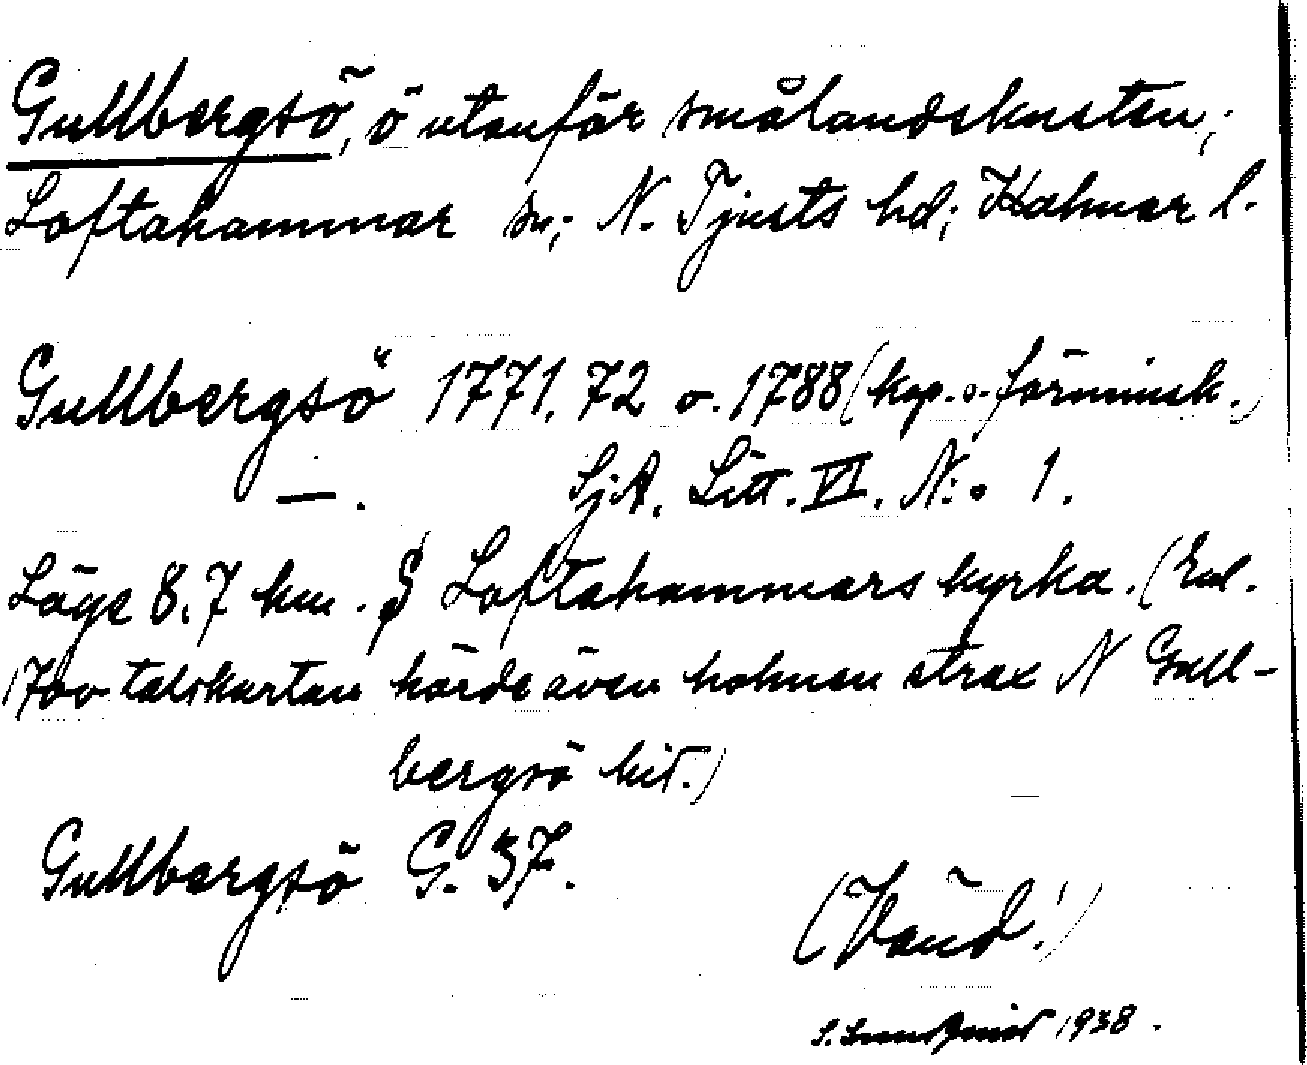 Gullbergsö, ö utanför smålandskusten;
Loftahammar sn; N. Tjusts hd; Kalmar l.
Gullbergsö 1771, 72 o. 1788 (kop. o. förminsk.)
— . SjA. Litt. VI. N:o 1.
Läge 8,7 km. S Loftahammars kyrka. (Enl.
1700-talskartan hörde även holmen strax N Gull-
bergsö hit.)
Gullbergsö G. 37.
(Vänd!)
1938.